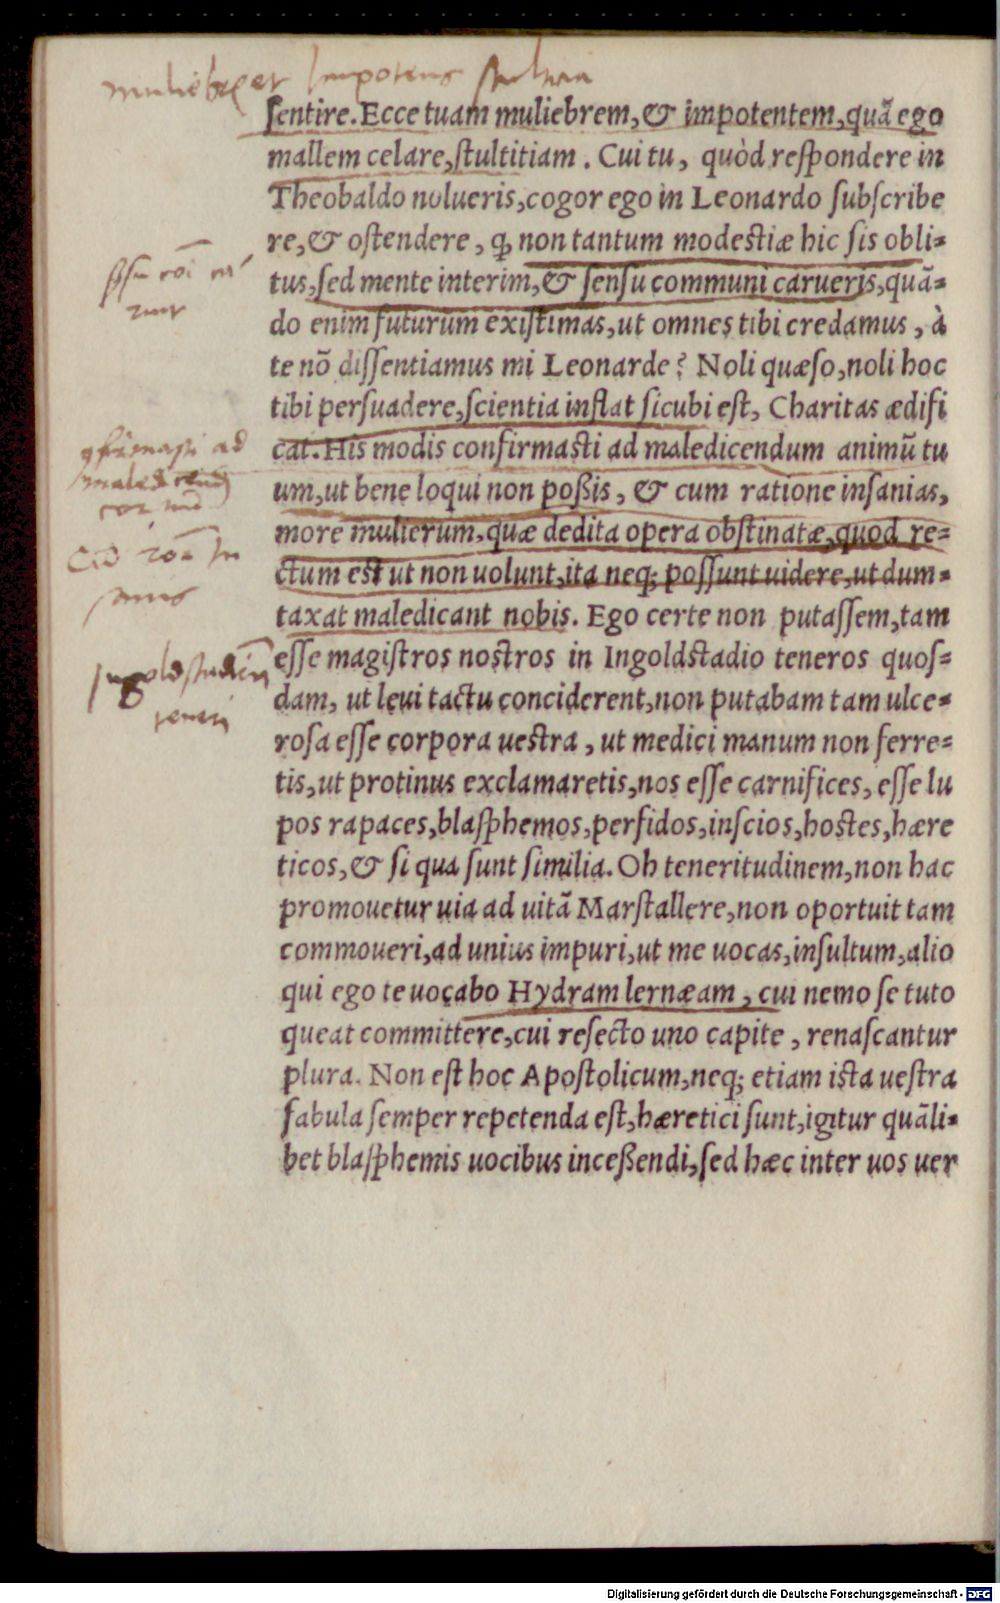 muliebrẽ et Impotens stultitia
sentire. Ecce tuam muliebrem, & impotentem, quã ego
mallem celare, stultitiam. Cui tu, quòd respondere in
Theobaldo nolueris, cogor ego in Leonardo subscribe
re, & ostendere, ꝙ non tantum modestiæ hic sis obli=
tus, sed mente interim, & sensu communi carueris, quã=
do enim futurum existimas, ut omnes tibi credamus, à
te nõ dissentiamus mi Leonarde? Noli quæso, noli hoc
tibi persuadere, scientia inflat sicubi est, Charitas ædifi
cat. His modis confirmasti ad maledicendum animũ tu
um, ut bene loqui non poßis, & cum ratione insanias,
more mulierum, quæ dedita opera obstinatæ, quod re=
ctum est ut non uolunt, ita neq; possunt uidere, ut dum=
taxat maledicant nobis. Ego certe non putassem, tam
esse magistros nostros in Ingoldstadio teneros quos=
dam, ut leui tactu conciderent, non putabam tam ulce=
rosa esse corpora uestra, ut medici manum non ferre=
tis, ut protinus exclamaretis, nos esse carnifices, esse lu
pos rapaces, blasphemos, perfidos, inscios, hostes, hære
ticos, & si qua sunt similia. Oh teneritudinem, non hac
promouetur uia ad uitã Marstallere, non oportuit tam
commoueri, ad unius impuri, ut me uocas, insultum, alio
qui ego te uocabo Hydram lernæam, cui nemo se tuto
queat committere, cui resecto uno capite, renascantur
plura. Non est hoc Apostolicum, neq; etiam ista uestra
fabula semper repetenda est, hæretici sunt, igitur quãli=
bet blasphemis uocibus inceßendi, sed hæc inter uos uer
ad
Ingoldstadien
teneri
Digitalisierung gefördert durch die Deutsche Forschungsgemeinschaft - DFG